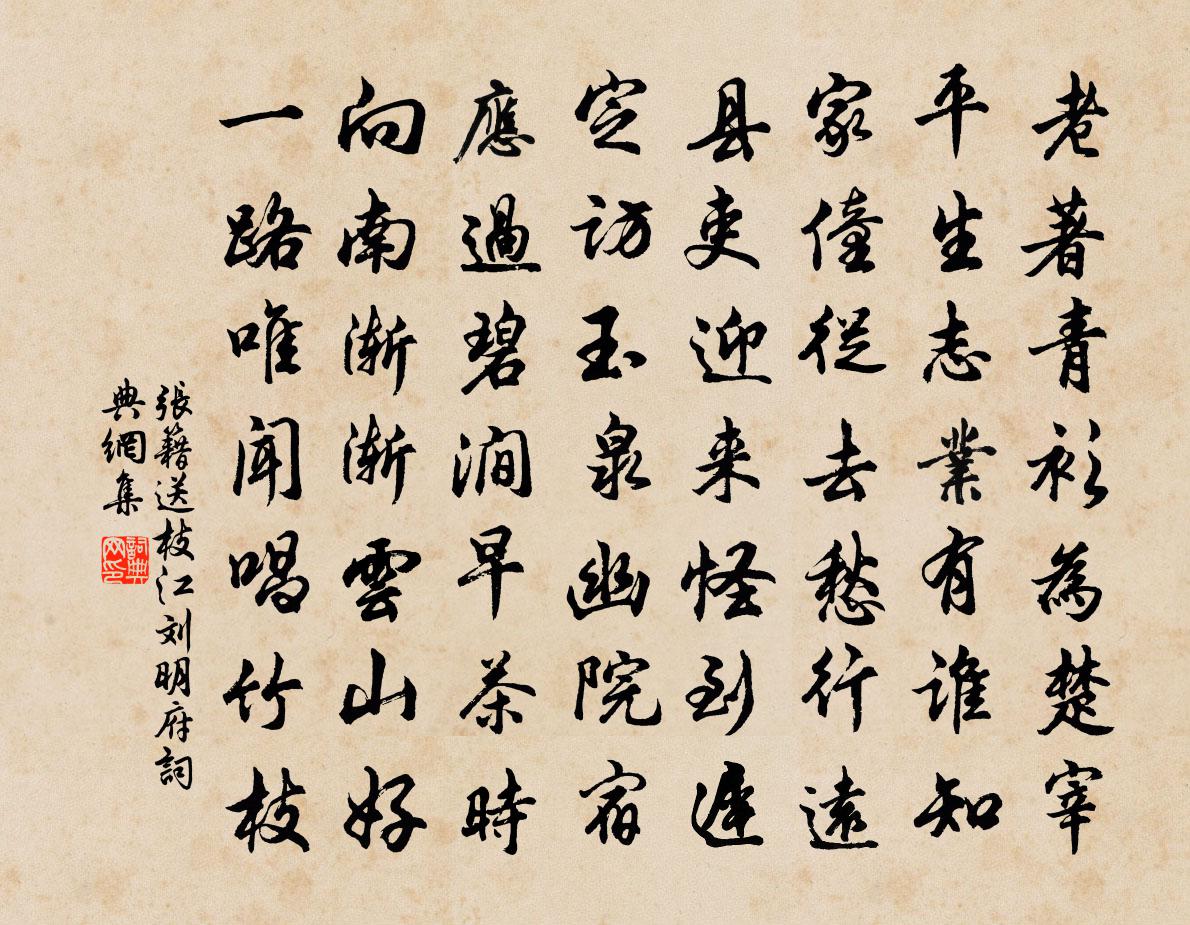 老著青衫為楚宰
平生志業有誰知
家僮從去愁行遠
县吏迎来怪到遲
定訪玉泉幽院宿
應過碧澗早茶時
向南漸漸雲山好
一路唯聞唱竹枝
張籍送枝江刘明府詞
典網集
詞典網印